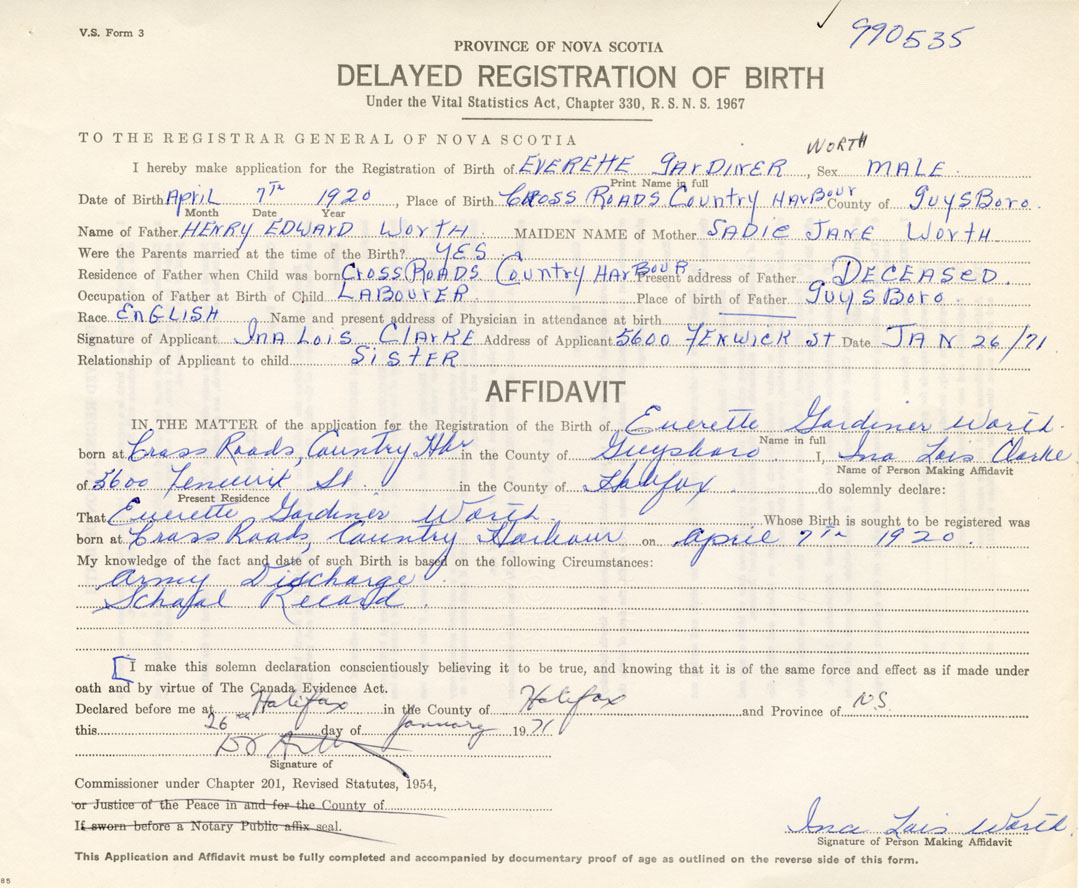 V.S. Form 3
990535
PROVINCE OF NOVA SCOTIA
DELAYED REGISTRATION OF BIRTH
Under the Vital Statistics Act, Chapter 330, R. S. N. S. 1967
TO THE REGISTRAR GENERAL OF NOVA SCOTIA
WORTH
I hereby make application for the Registration of Birth of EVERETTE GARDINER, Sex MALE.
Print Name in full
Date of Birth April 7TH 1920, Place of Birth CROSS ROADS Country HARBOUR County of GUYSBORO.
Month Date Year
Name of Father HENRY EDWARD WORTH MAIDEN NAME of Mother SADIE JANE WORTH
Were the Parents married at the time of the Birth? YES
Residence of Father when Child was born CROSS ROADS Country HARBOUR Present address of Father DECEASED.
Occupation of Father at Birth of Child LABOURER Place of birth of Father GUYSBORO.
Race ENGLISH Name and present address of Physician in attendance at birth
Signature of Applicant INA LOIS CLARKE Address of Applicant 5600 FENWICK ST Date JAN 26/71
Relationship of Applicant to child SISTER
AFFIDAVIT
IN THE MATTER of the application for the Registration of the Birth of Everette Gardiner Worth.
Name in full
born at Cross Roads, Country Hbr in the County of Guysboro. I, Ina Lois Clarke
Name of Person Making Affidavit
of 5600 Fenwick St. in the County of Halifax. do solemnly declare:
Present Residence
That Everette Gardiner Worth. Whose Birth is sought to be registered was
born at Cross Roads, Country Harbour on April 7th 1920.
My knowledge of the fact and date of such Birth is based on the following Circumstances:
Army Discharge
School Record.
I make this solemn declaration conscientiously believing it to be true, and knowing that it is of the same force and effect as if made under
oath and by virtue of The Canada Evidence Act.
Declared before me at Halifax in the County of Halifax and Province of N.S.
this 26th day of January 1971
Signature of
Commissioner under Chapter 201, Revised Statutes, 1954,
or Justice of the Peace in and for the County of
If sworn before a Notary Public affix seal.
Ina Lois Worth.
Signature of Person Making Affidavit
This Application and Affidavit must be fully completed and accompanied by documentary proof of age as outlined on the reverse side of this form.
85